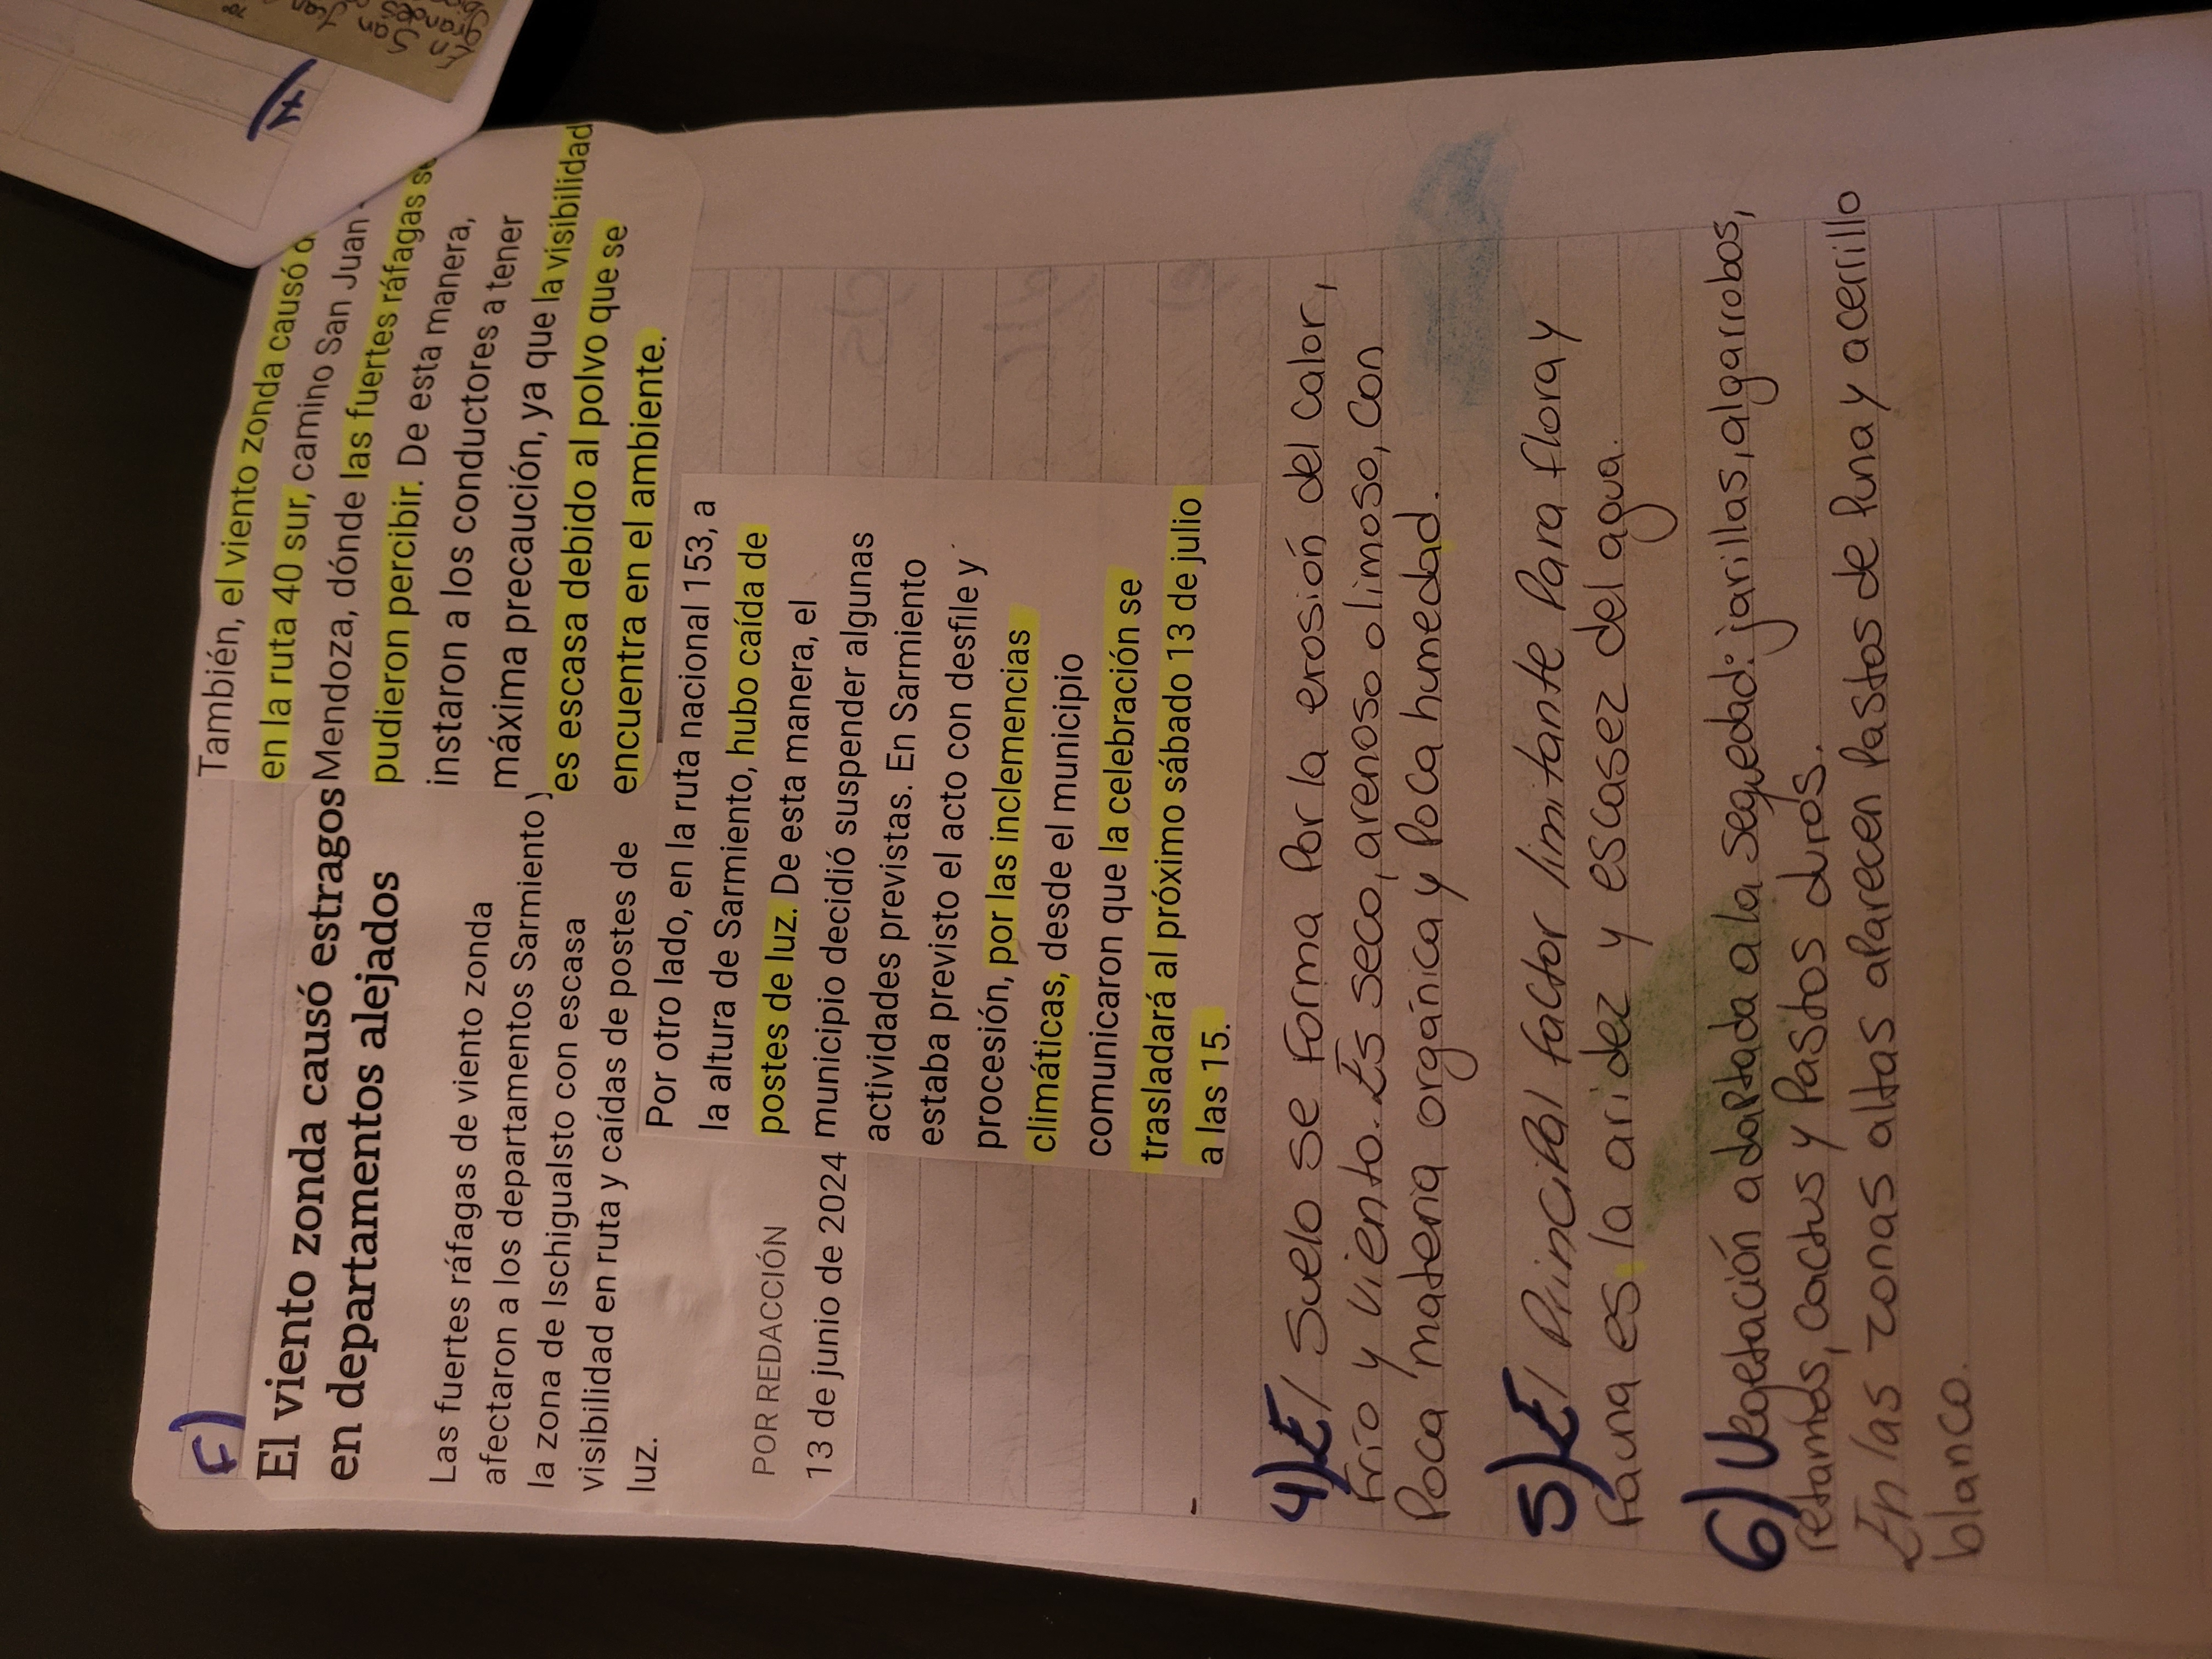 F)
El viento zonda causó estragos
en departamentos alejados
Las fuertes ráfagas de viento zonda
afectaron a los departamentos Sarmiento y
la zona de Ischigualsto con escasa
visibilidad en ruta y caídas de postes de
luz.
POR REDACCIÓN
13 de junio de 2024
También, el viento zonda causó
en la ruta 40 sur, camino San Juan -
Mendoza, dónde las fuertes ráfagas se
pudieron percibir. De esta manera,
instaron a los conductores a tener
máxima precaución, ya que la visibilidad
es escasa debido al polvo que se
encuentra en el ambiente.
Por otro lado, en la ruta nacional 153, a
la altura de Sarmiento, hubo caída de
postes de luz. De esta manera, el
municipio decidió suspender algunas
actividades previstas. En Sarmiento
estaba previsto el acto con desfile y
procesión, por las inclemencias
climáticas, desde el municipio
comunicaron que la celebración se
trasladará al próximo sábado 13 de julio
a las 15.
4) El suelo se forma por la erosión del calor,
frío y viento. Es seco, arenoso o limoso, con
poca materia orgánica y poca humedad.
5) El principal factor limitante para flora y
fauna es la aridez y escasez del agua.
6) Vegetación adaptada a la sequedad: jarillas, algarrobos,
retamos, cactus y pastos duros.
En las zonas altas aparecen pastos de puna y acerillo
blanco.
En
grandes
San